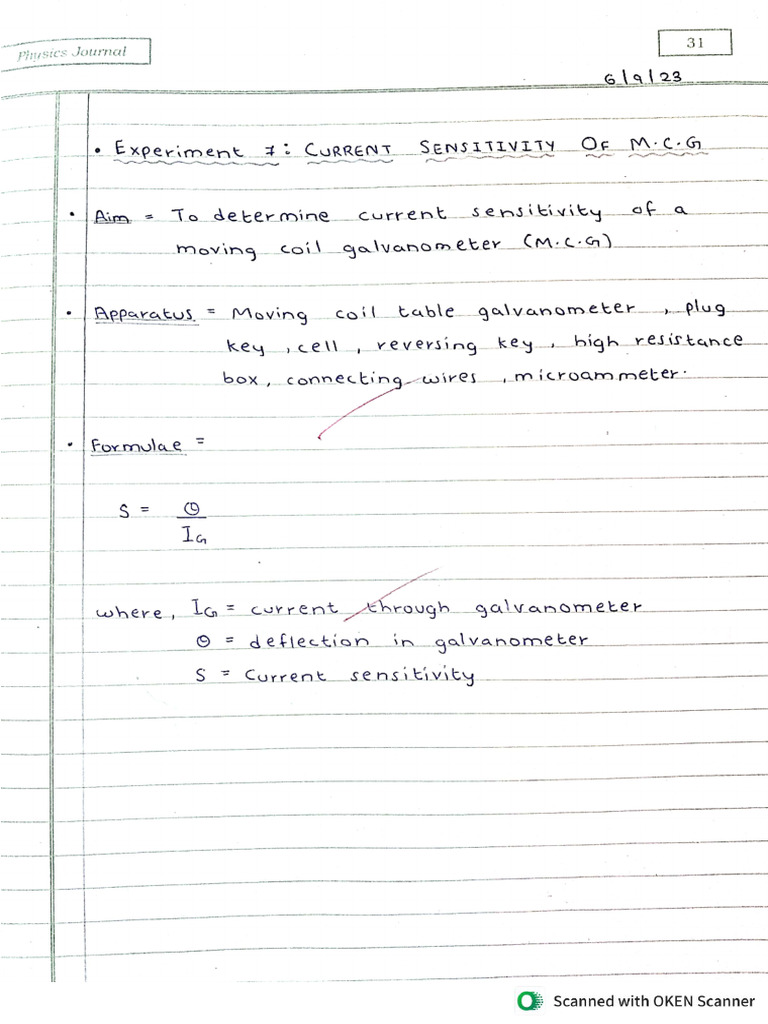 Physics Journal
31
6/9/23
• Experiment 7: CURRENT SENSITIVITY OF M.C.G
• Aim = To determine current sensitivity of a
moving coil galvanometer (M.C.G)
• Apparatus = Moving coil table galvanometer, plug
key, cell, reversing key, high resistance
box, connecting wires, microammeter.
• Formulae =
S = Θ
IG
where, IG = current through galvanometer
Θ = deflection in galvanometer
S = Current sensitivity
Scanned with OKEN Scanner